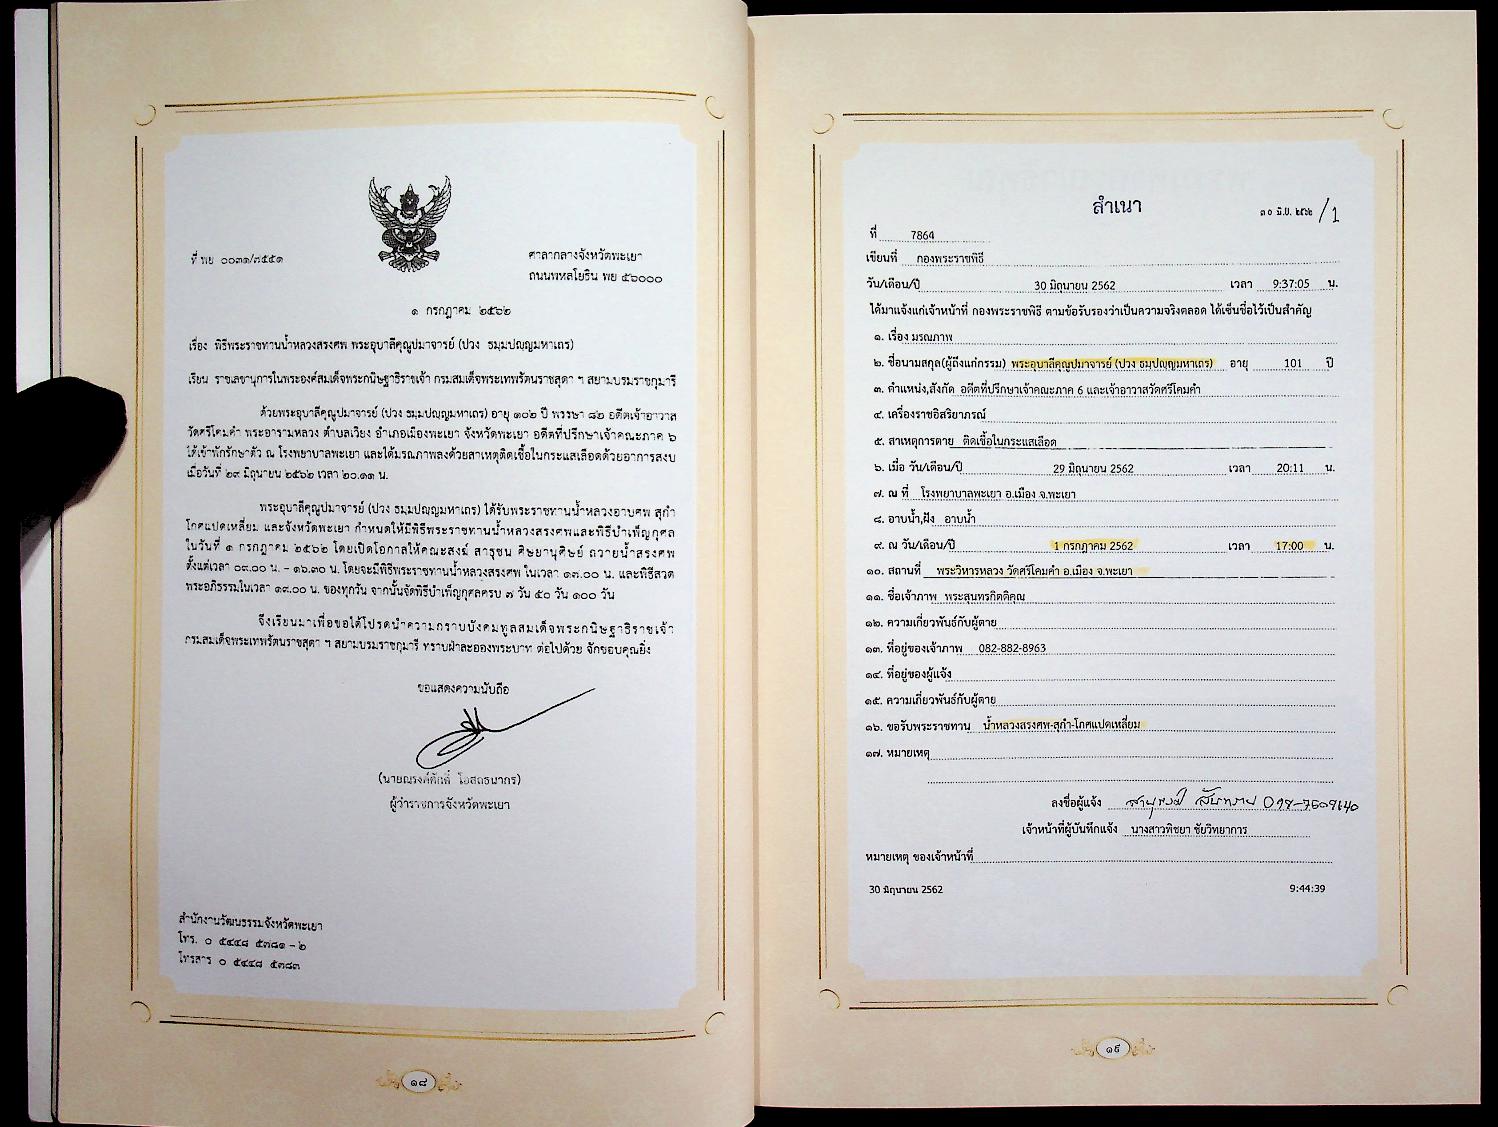 ที่ พย ๐๐๓๑/๓๕๕๑
ศาลากลางจังหวัดพะเยา
ถนนพหลโยธิน พย ๕๖๐๐๐
๑ กรกฎาคม ๒๕๖๒
เรื่อง พิธีพระราชทานน้ำหลวงสรงศพ พระอุบาลีคุณูปมาจารย์ (ปวง ธมฺมปญฺญมหาเถร)
เรียน ราชเลขานุการในพระองค์สมเด็จพระกนิษฐาธิราชเจ้า กรมสมเด็จพระเทพรัตนราชสุดา ฯ สยามบรมราชกุมารี
ด้วยพระอุบาลีคุณูปมาจารย์ (ปวง ธมฺมปญฺญมหาเถร) อายุ ๑๐๒ ปี พรรษา ๘๒ อดีตเจ้าอาวาส
วัดศรีโคมคำ พระอารามหลวง ตำบลเวียง อำเภอเมืองพะเยา จังหวัดพะเยา อดีตที่ปรึกษาเจ้าคณะภาค ๖
ได้เข้าพักรักษาตัว ณ โรงพยาบาลพะเยา และได้มรณภาพลงด้วยสาเหตุติดเชื้อในกระแสเลือดด้วยอาการสงบ
เมื่อวันที่ ๒๙ มิถุนายน ๒๕๖๒ เวลา ๒๐.๑๑ น.
พระอุบาลีคุณูปมาจารย์ (ปวง ธมฺมปญฺญมหาเถร) ได้รับพระราชทานน้ำหลวงอาบศพ สุกำ
โกศแปดเหลี่ยม และจังหวัดพะเยา กำหนดให้มีพิธีพระราชทานน้ำหลวงสรงศพและพิธีบำเพ็ญกุศล
ในวันที่ ๑ กรกฎาคม ๒๕๖๒ โดยเปิดโอกาสให้คณะสงฆ์ สาธุชน ศิษยานุศิษย์ ถวายน้ำสรงศพ
ตั้งแต่เวลา ๐๙.๐๐ น. - ๑๖.๓๐ น. โดยจะมีพิธีพระราชทานน้ำหลวงสรงศพ ในเวลา ๑๗.๐๐ น. และพิธีสวด
พระอภิธรรมในเวลา ๑๙.๐๐ น. ของทุกวัน จากนั้นจัดพิธีบำเพ็ญกุศลครบ ๗ วัน ๕๐ วัน ๑๐๐ วัน
จึงเรียนมาเพื่อขอได้โปรดนำความกราบบังคมทูลสมเด็จพระกนิษฐาธิราชเจ้า
กรมสมเด็จพระเทพรัตนราชสุดา ฯ สยามบรมราชกุมารี ทราบฝ่าละอองพระบาท ต่อไปด้วย จักขอบคุณยิ่ง
ขอแสดงความนับถือ
(นายณรงค์ศักดิ์ โอสถธนากร)
ผู้ว่าราชการจังหวัดพะเยา
สำนักงานวัฒนธรรมจังหวัดพะเยา
โทร. ๐ ๕๔๔๘ ๕๗๘๑ - ๒
โทรสาร ๐ ๕๔๔๘ ๕๗๘๓
๑๘
สำเนา
๓๐ มิ.ย. ๒๕๖๒ /1
ที่ 7864
เขียนที่ กองพระราชพิธี
วัน/เดือน/ปี 30 มิถุนายน 2562 เวลา 9:37:05 น.
ได้มาแจ้งแก่เจ้าหน้าที่ กองพระราชพิธี ตามข้อรับรองว่าเป็นความจริงตลอด ได้เซ็นชื่อไว้เป็นสำคัญ
๑. เรื่อง มรณภาพ
๒. ชื่อนามสกุล(ผู้ถึงแก่กรรม) พระอุบาลีคุณูปมาจารย์ (ปวง ธมฺปญฺญมหาเถร) อายุ 101 ปี
๓. ตำแหน่ง,สังกัด อดีตที่ปรึกษาเจ้าคณะภาค 6 และเจ้าอาวาสวัดศรีโคมคำ
๔. เครื่องราชอิสริยาภรณ์
๕. สาเหตุการตาย ติดเชื้อในกระแสเลือด
๖. เมื่อ วัน/เดือน/ปี 29 มิถุนายน 2562 เวลา 20:11 น.
๗. ณ ที่ โรงพยาบาลพะเยา อ.เมือง จ.พะเยา
๘. อาบน้ำ,ฝัง อาบน้ำ
๙. ณ วัน/เดือน/ปี 1 กรกฎาคม 2562 เวลา 17:00 น.
๑๐. สถานที่ พระวิหารหลวง วัดศรีโคมคำ อ.เมือง จ.พะเยา
๑๑. ชื่อเจ้าภาพ พระสุนทรกิตติคุณ
๑๒. ความเกี่ยวพันธ์กับผู้ตาย
๑๓. ที่อยู่ของเจ้าภาพ 082-882-8963
๑๔. ที่อยู่ของผู้แจ้ง
๑๕. ความเกี่ยวพันธ์กับผู้ตาย
๑๖. ขอรับพระราชทาน น้ำหลวงสรงศพ-สุกำ-โกศแปดเหลี่ยม
๑๗. หมายเหตุ
ลงชื่อผู้แจ้ง
เจ้าหน้าที่ผู้บันทึกแจ้ง นางสาวพิชยา ชัยวิทยาการ
หมายเหตุ ของเจ้าหน้าที่
30 มิถุนายน 2562 9:44:39
๑๙